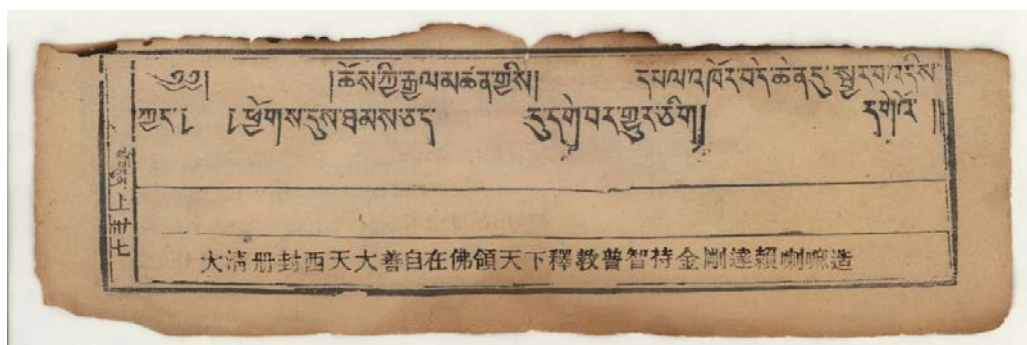 ༄༅། །ཆོས་ཀྱི་རྒྱལ་མཚན་གྱིས། དཔལ་འཁོར་བདེ་ཆེན་དུ་སྦྱར་བ་འདིས་
ཀྱང་། །ཕྱོགས་དུས་ཐམས་ཅད་དུ་དགེ་བར་གྱུར་ཅིག།། དགེའོ།།
上卅七
大清册封西天大善自在佛領天下釋教普智持金剛達賴喇嘛造